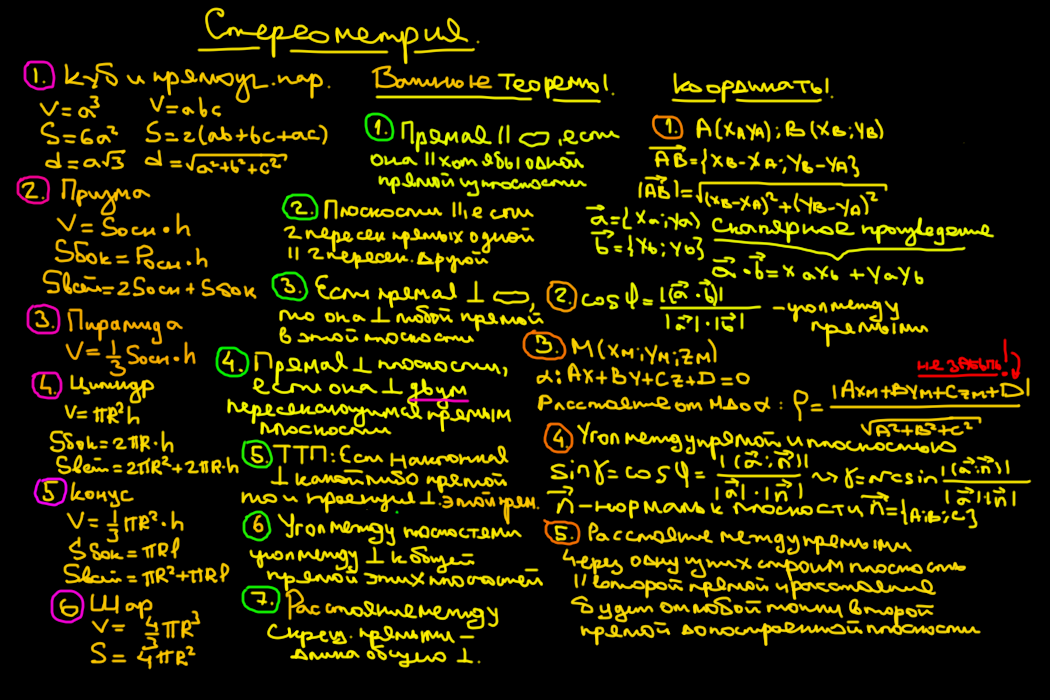 Стереометрия.
1. Куб и прямоуг. пар.
V=a³ V=abc
S=6a² S=2(ab+bc+ac)
d=a√3 d=√(a²+b²+c²)
2. Призма
V=Sосн·h
Sбок=Pосн·h
Sвсей=2Sосн+Sбок
3. Пирамида
V=1/3 Sосн·h
4. Цилиндр
V=πR²h
Sбок=2πR·h
Sвсей=2πR²+2πR·h
5 Конус
V=1/3 πR²·h
Sбок=πRl
Sвсей=πR²+πRl
6 Шар
V= 4/3 πR³
S= 4πR²
Важные Теоремы.
1. Прямая || ▱, если
она || хотя бы одной
прямой из плоскости
2. Плоскости ||, если
2 пересек прямых одной
|| 2 пересек. другой
3. Если прямая ⊥ ▱,
то она ⊥ любой прямой
в этой плоскости
4. Прямая ⊥ плоскости,
если она ⊥ двум
пересекающимся прямым
плоскости
5. ТТП: Если наклонная
⊥ какой либо прямой
то и проекция ⊥ этой прям.
6 Угол между плоскостями
угол между ⊥ к общей
прямой этих плоскостей
7. Расстояние между
скрещ. прямыми –
длина общего ⊥.
Координаты.
1. A(XA YA); B(XB; YB)
AB→={XB-XA; YB-YA}
|AB→|=√((XB-XA)²+(YB-YA)²)
a→={Xa; Ya} Скалярное произведение
b→={Xb; Yb}
a→·b→=XaXb+YaYb
2. cosφ=|(a→·b→)|/(|a→|·|b→|) – угол между
прямыми
3. M(XM; YM; ZM)
не забыть!
α: AX+BY+CZ+D=0
Расстояние от M до α: ρ=|AXM+BYM+CZM+D|/√(A²+B²+C²)
4. Угол между прямой и плоскостью
sinγ=cosφ=|(a→·n→)|/(|a→|·|n→|) ⇝ γ=arcsin |(a→·n→)|/(|a→|·|n→|)
n→ – нормаль к плоскости n→={A;B;C}
5. Расстояние между прямыми
Через одну из них строим плоскость
|| второй прямой и расстояние
будет от любой точки второй
прямой до построенной плоскости